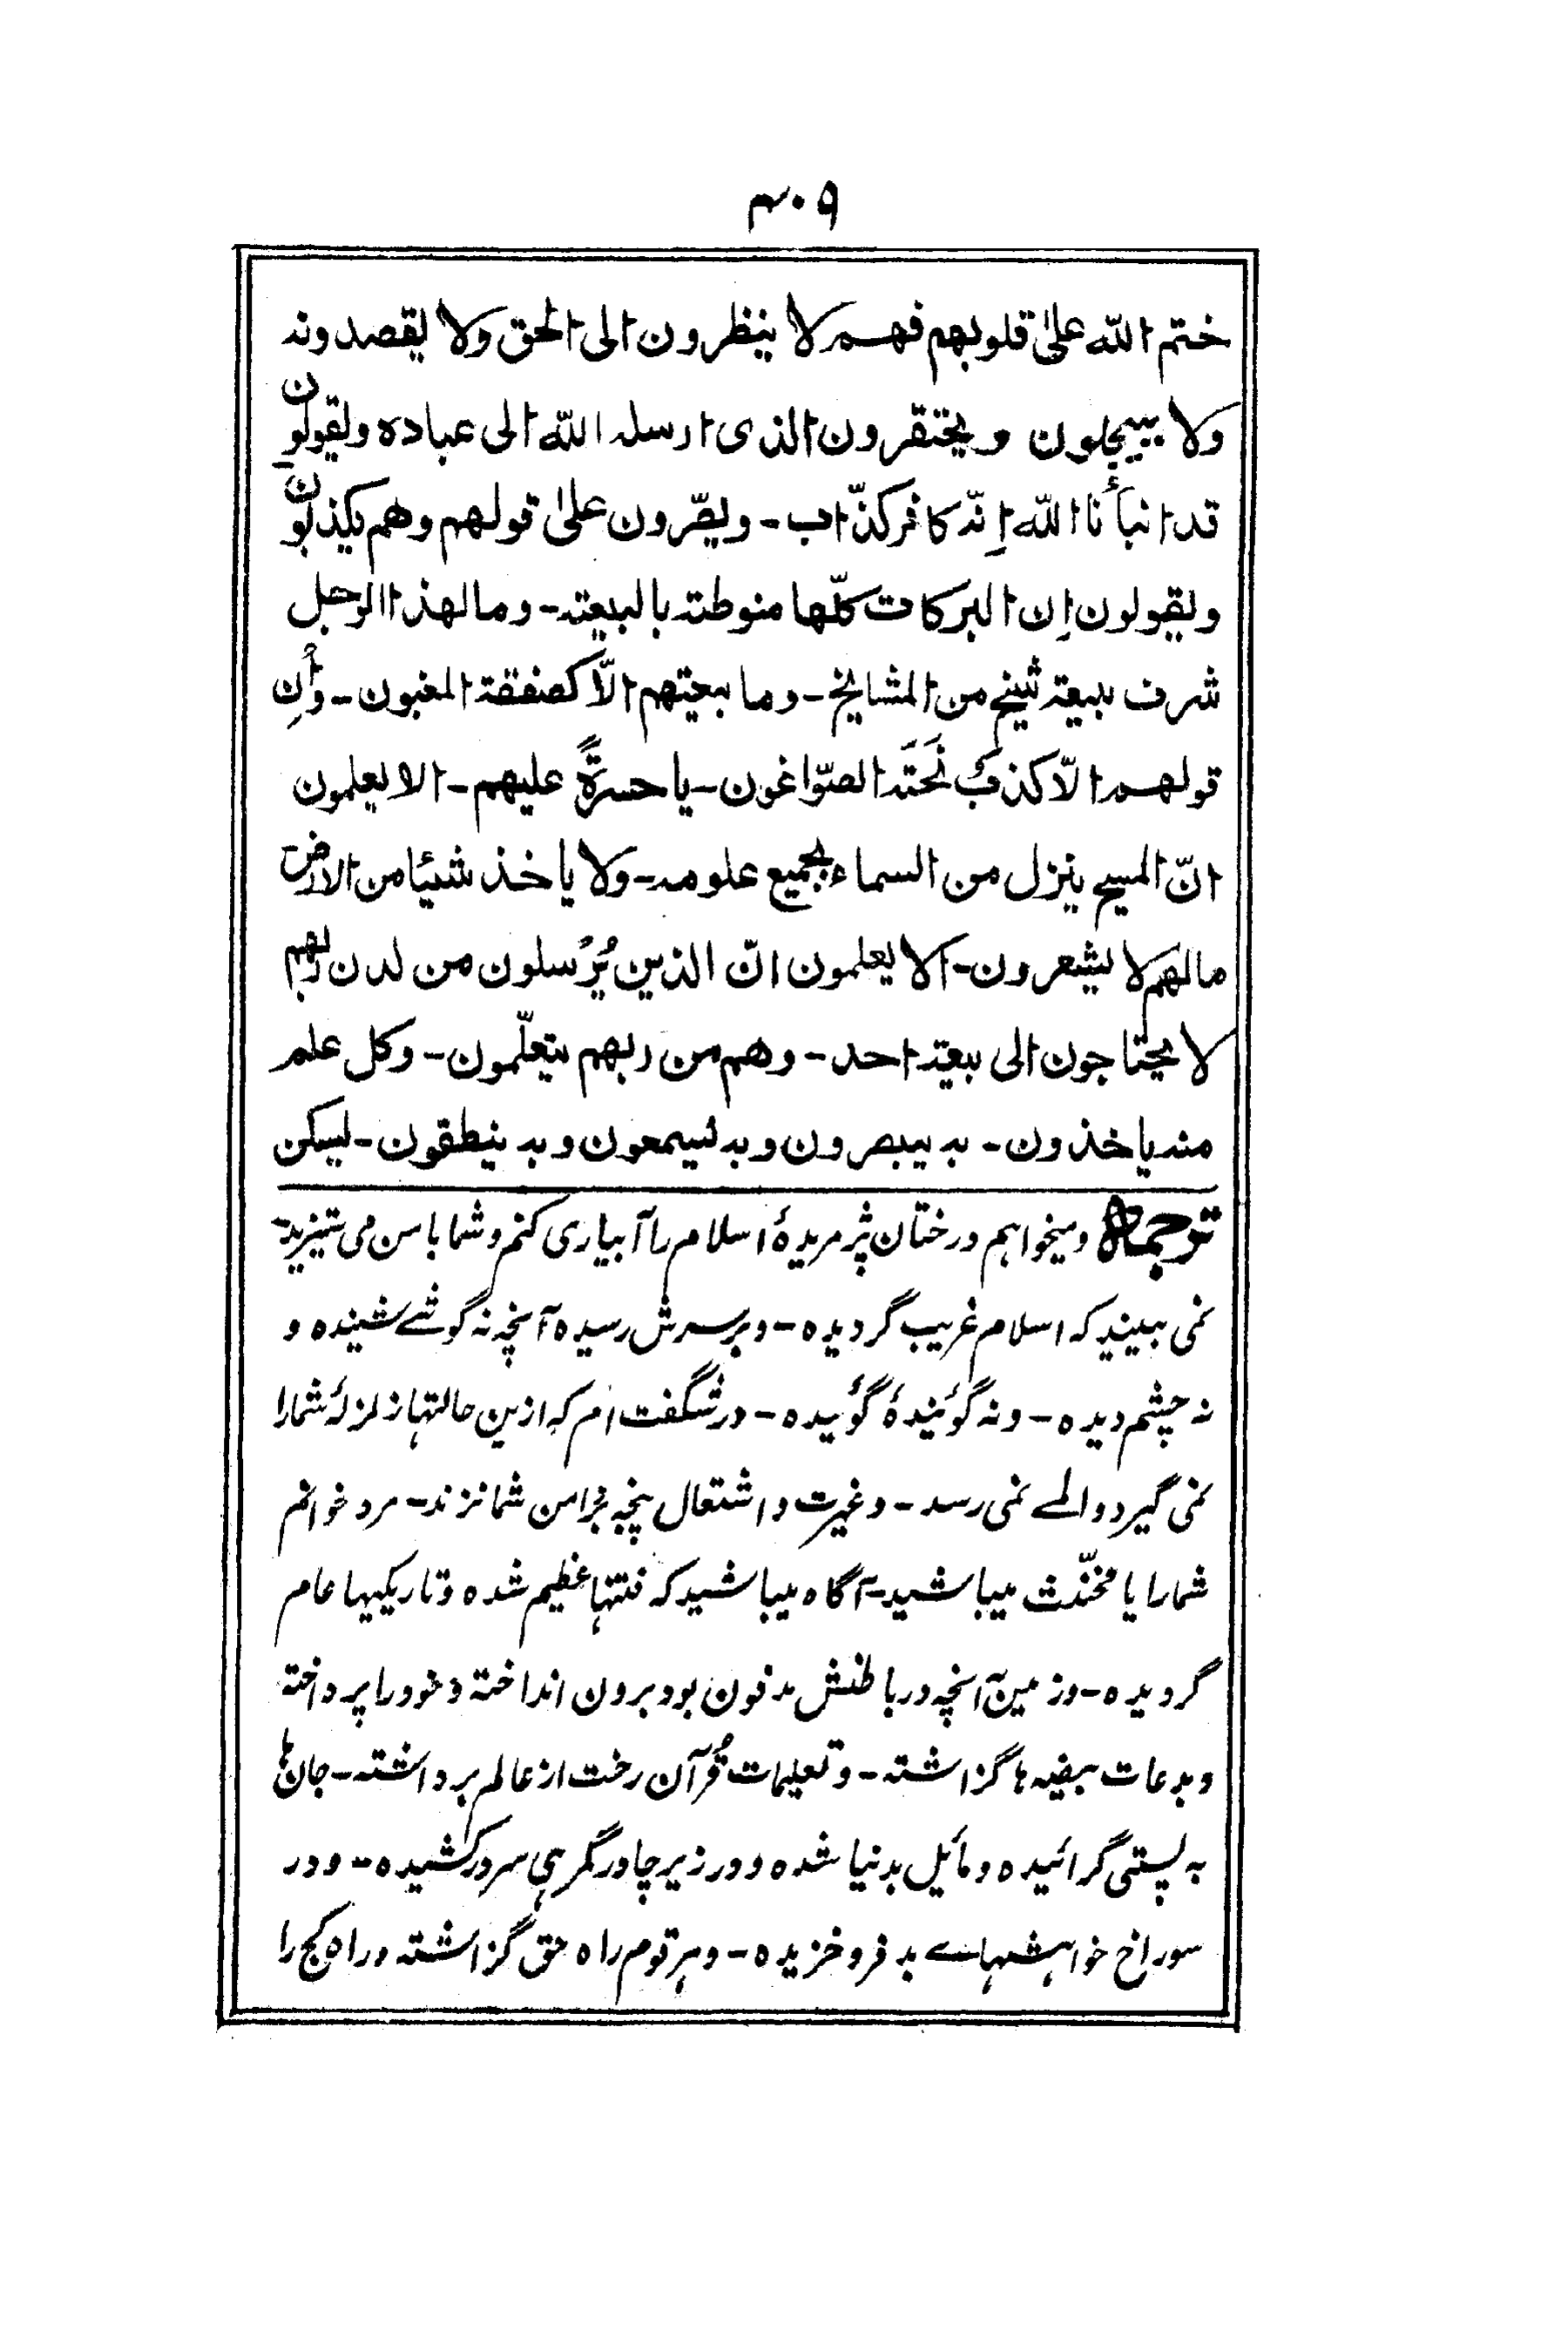 ۴۰۹
ختم الله علىٰ قلوبهم فهم لا ينظرون الى الحق ولا يقصدونه
ولا يبيجلون ويحتقرون الذى ارسله الله الى عباده ويقولون
قد انبأنا الله اِنّه كافر كذّاب - ويصّرون علىٰ قولهم وهم يكذبون
ويقولون اِن البركات كلّها منوطته بالبيعته - وما لهذا الرجل
شرف ببيعة شيخ من المشايخ - وما بيعتهم الّا كصفقة المغبون - وأن
قولهم الّا كذبٌ نَحَتَه الصوّاغون - يا حسرةً عليهم - الا يعلمون
انّ المسيح ينزل من السماء بجميع علومه - ولا ياخذ شيئا من الارض
مالهم لا يشعرون - الا يعلمون انّ الذين يُرْسلون من لدن ربهم
لا يحتاجون الى بيعة احد - وهم من ربهم يتعلّمون - وكل علم
منه ياخذون - به يبصرون وبه يسمعون وبه ينطقون - ليسكن
ترجمه و میخواهم درختان پژمریدهٔ اسلام را آبیاری کنم و شما با من می ستیزید-
نمی بینید که اسلام غریب گردیده - و بر سرش رسیده آنچه نه گوشے شنیده و
نه چشم دیده - و نه گوئیندهٔ گوئیده - در شگفت ام که ازین حالتها زلزلهٔ شما را
نمی گیرد و المے نمی رسد - و غیرت و اشتعال پنجه بدامن شما نزند - مرد خوانم
شما را یا مخنّث میباشید - آگاه میباشید که فتنها عظیم شده و تاریکیها عام
گردیده - و زمین آنچه در باطنش مدفون بود برون انداخته و خود را پرداخته
و بدعات بیضه ها گزاشته - و تعلیمات قُرآن رخت از عالم برداشته - جان ها
به پستی گرائیده و مایٔل بدنیا شده و در زیر چادر گمرہی سر درکشیده - و در
سوراخ خواہشہاے بد فرو خزیده - و ہر قوم راه حق گزاشته و راه کج را